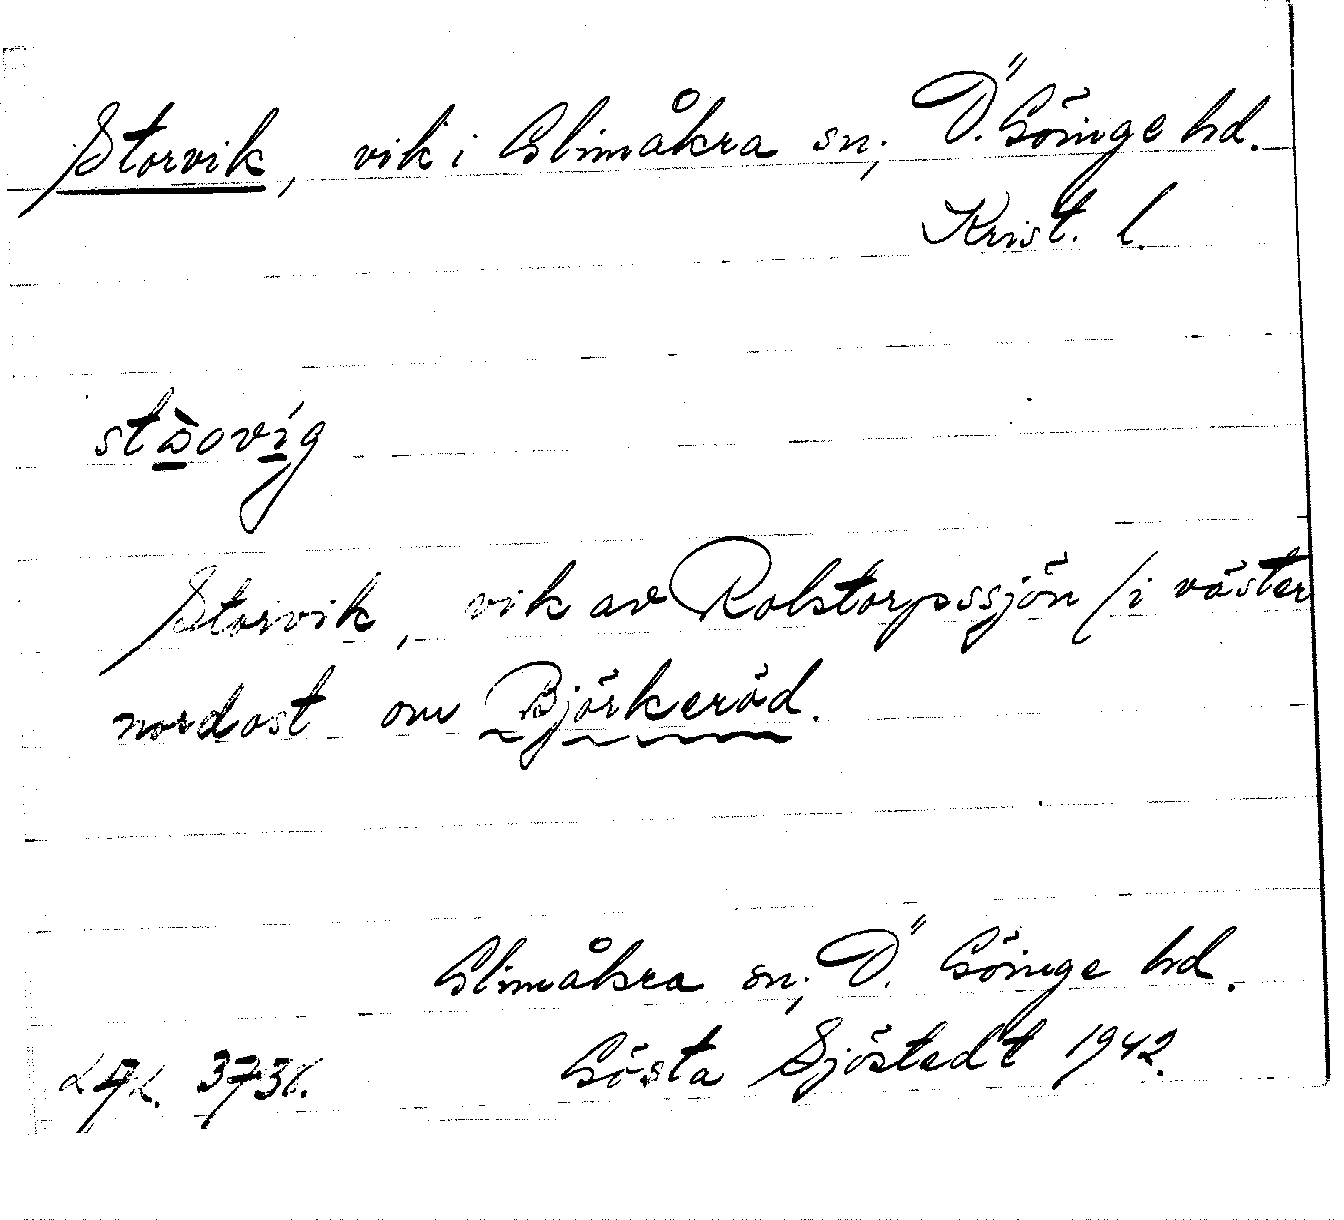 Storvik, vik i Glimåkra sn; Ö. Göinge hd.
Krist. l.
Storvik, vik av Rolstorpssjön / i väster
nordost om Björkeröd.
Glimåkra sn; Ö. Göinge hd.
Gösta Sjöstedt 1942.